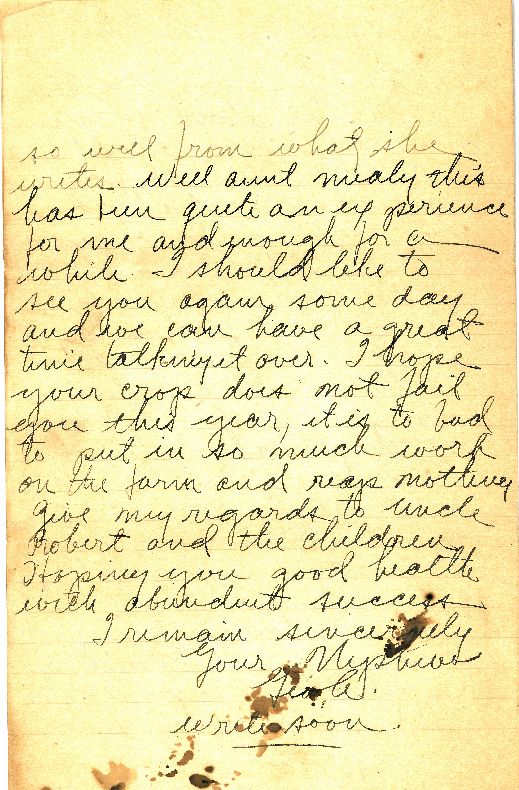 so well from what she
writes. Well aunt mealy this
has been quite an ex perience
for me and enough for a
while. I should like to
see you again some day
and we can have a great
time talking it over. I hope
your crop does not fail
you this year, it is to bad
to put in so much work
on the farm and reap nothing
give my regards to uncle
Robert and the children
Hoping you good health
with abundant success
I remain sincerely
Your Nephew
write soon.